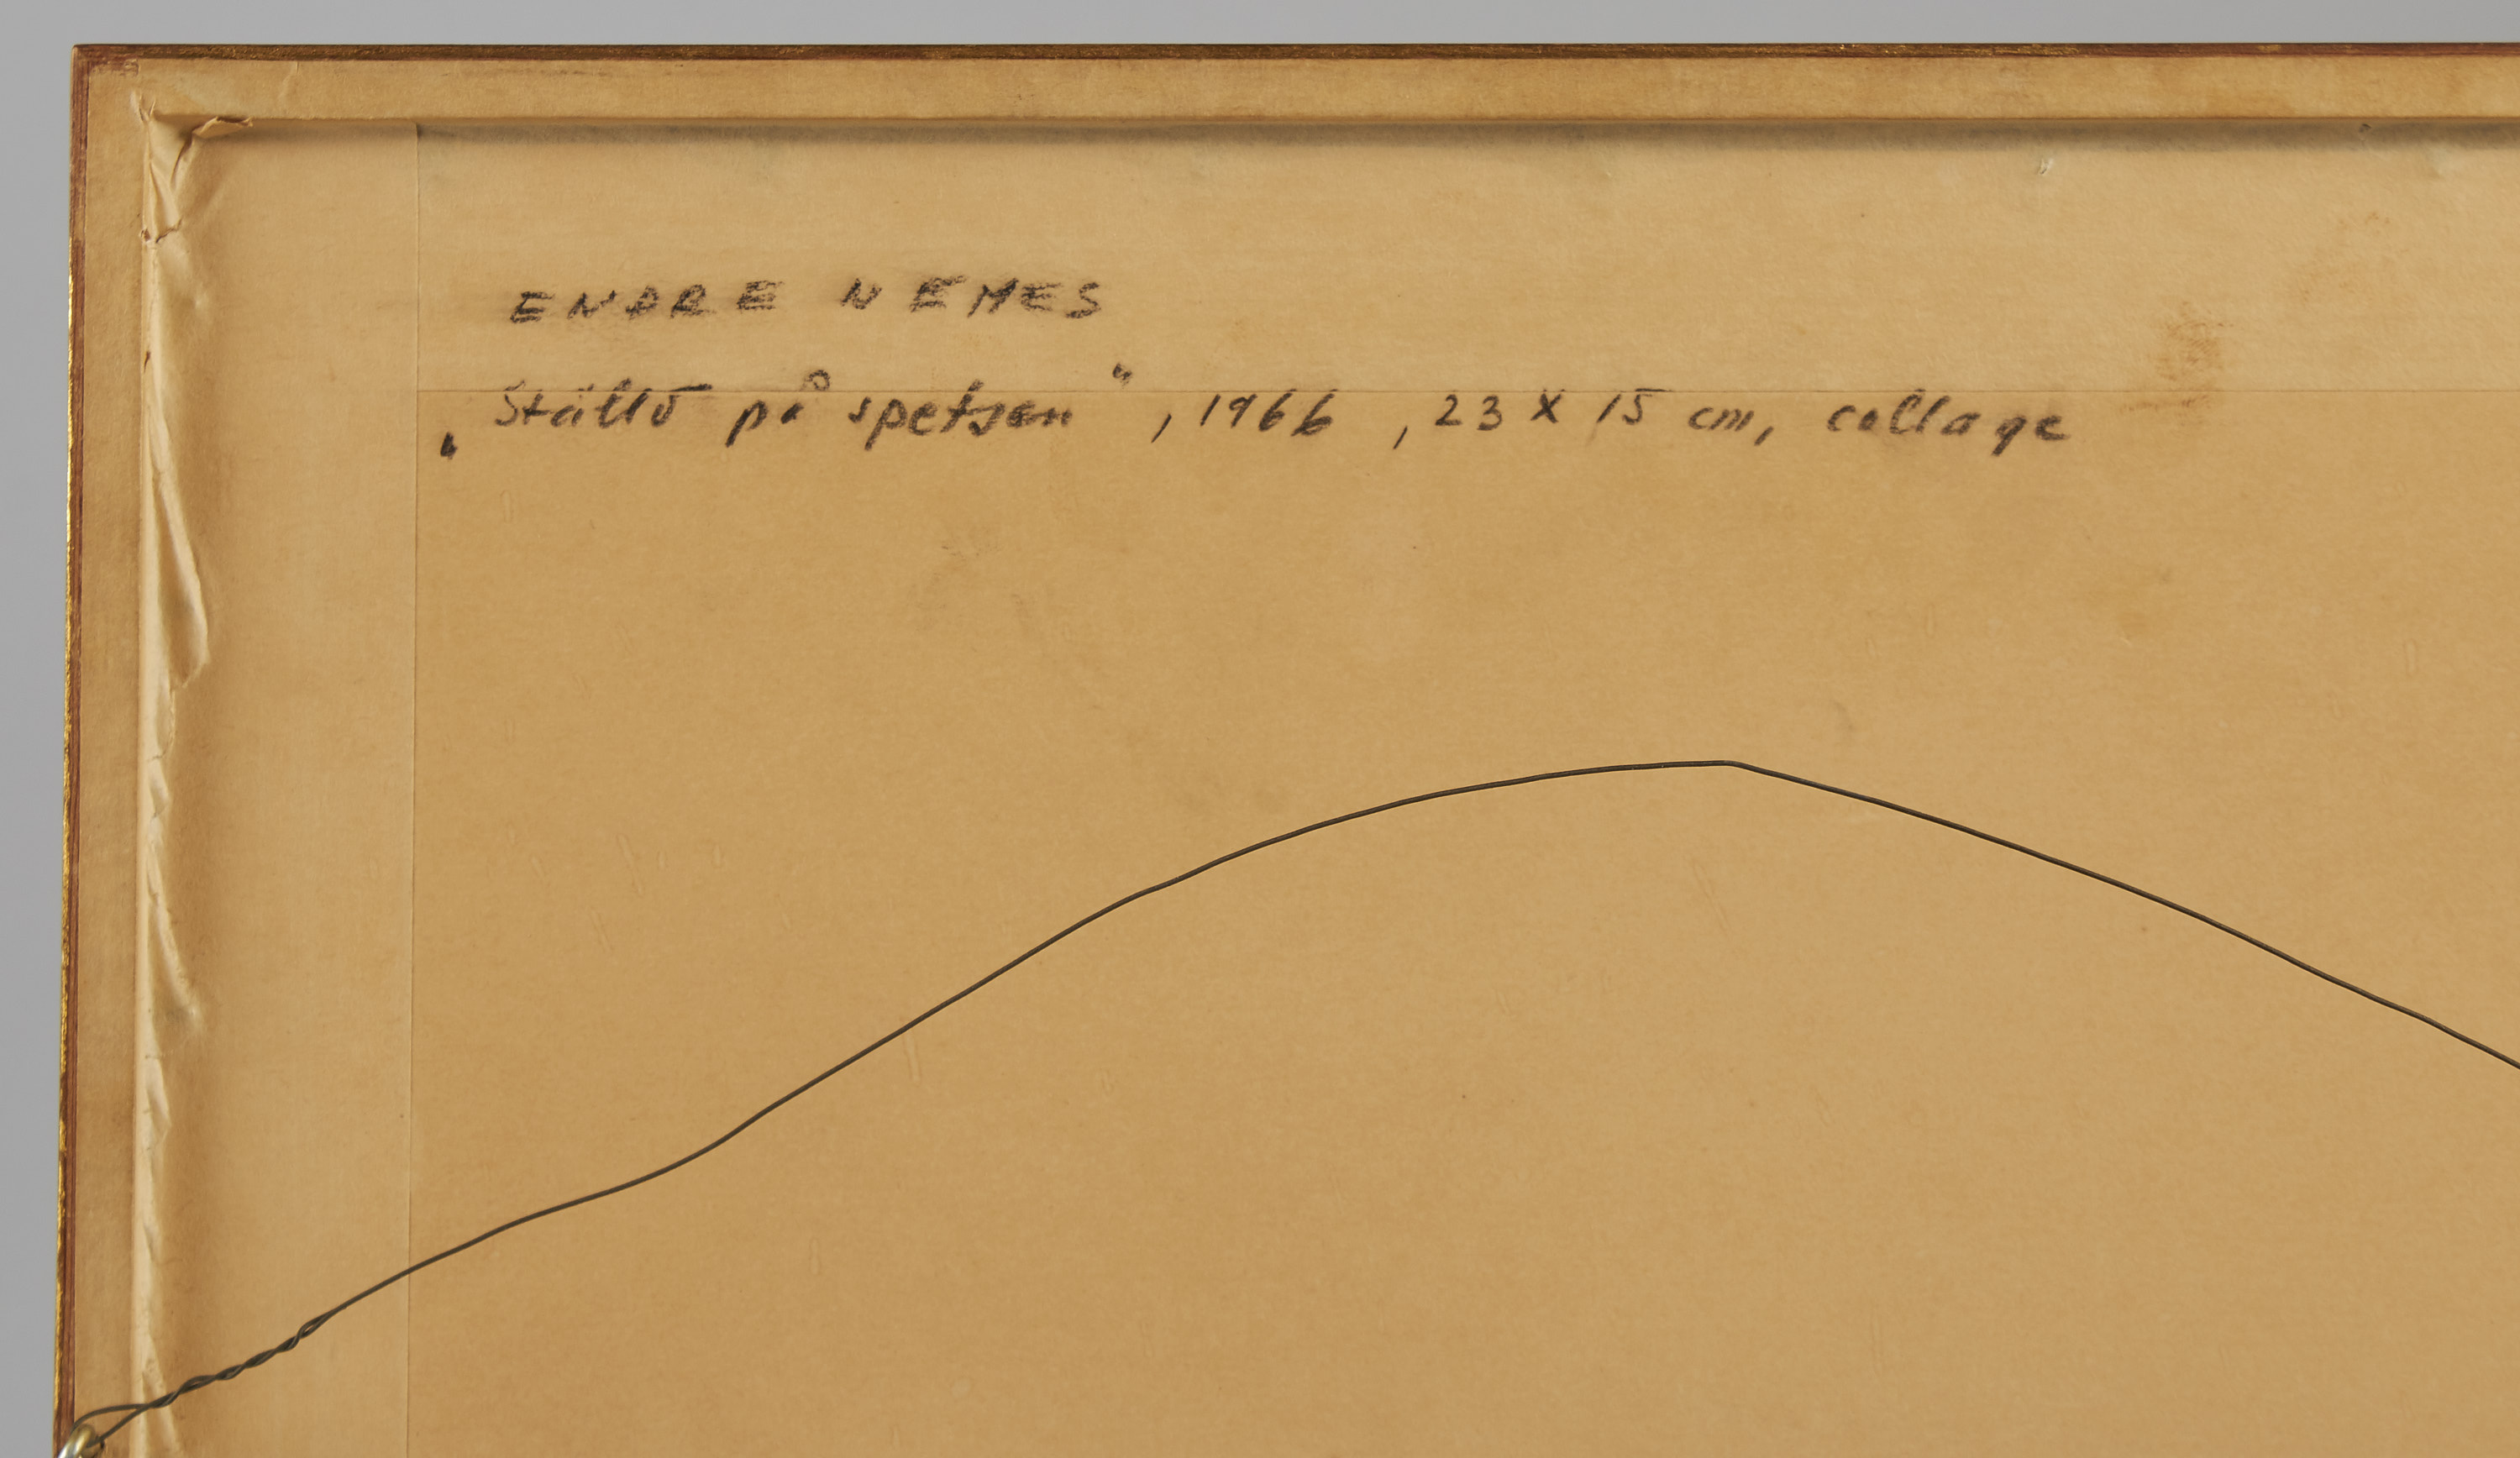 ENDRE NEMES
„Ställd på spetsen“, 1966, 23 X 15 cm, collage